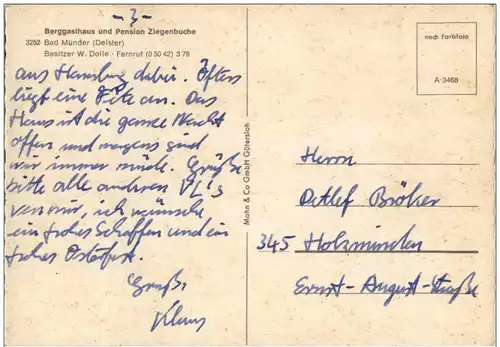 - 3 -
Berggasthaus und Pension Ziegenbuche
3252 Bad Münder (Deister)
Besitzer W. Dolle · Fernruf (0 50 42) 3 78
aus Hamburg dabei. Öfters
liegt eine Fete an. Das
Haus ist die ganze Nacht
offen und morgens sind
wir immer müde. Grüße
bitte alle anderen VL's
von mir, ich wünsche
ein frohes Schaffen und ein
frohes Osterfest.
Gruß
Klaus
Mohn & Co GmbH Gütersloh
nach Farbfoto
A 3468
Herrn
Detlef Bröker
345 Holzminden
Ernst-August-Straße